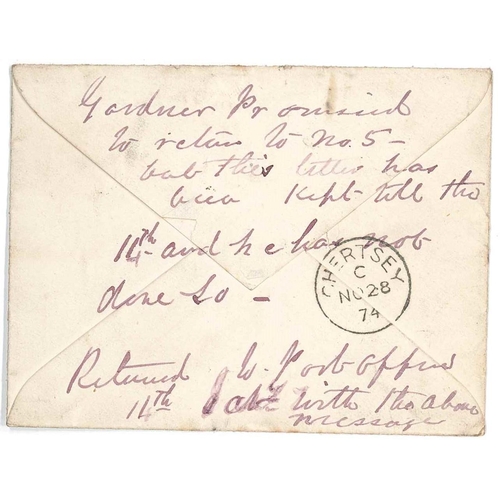 Gardner Promised
to return to No. 5 -
but this letter has
been kept till the
14th and he has not
done so -
CHERTSEY
C
NO 28
74
Returned to Post Office
14th with the above
message